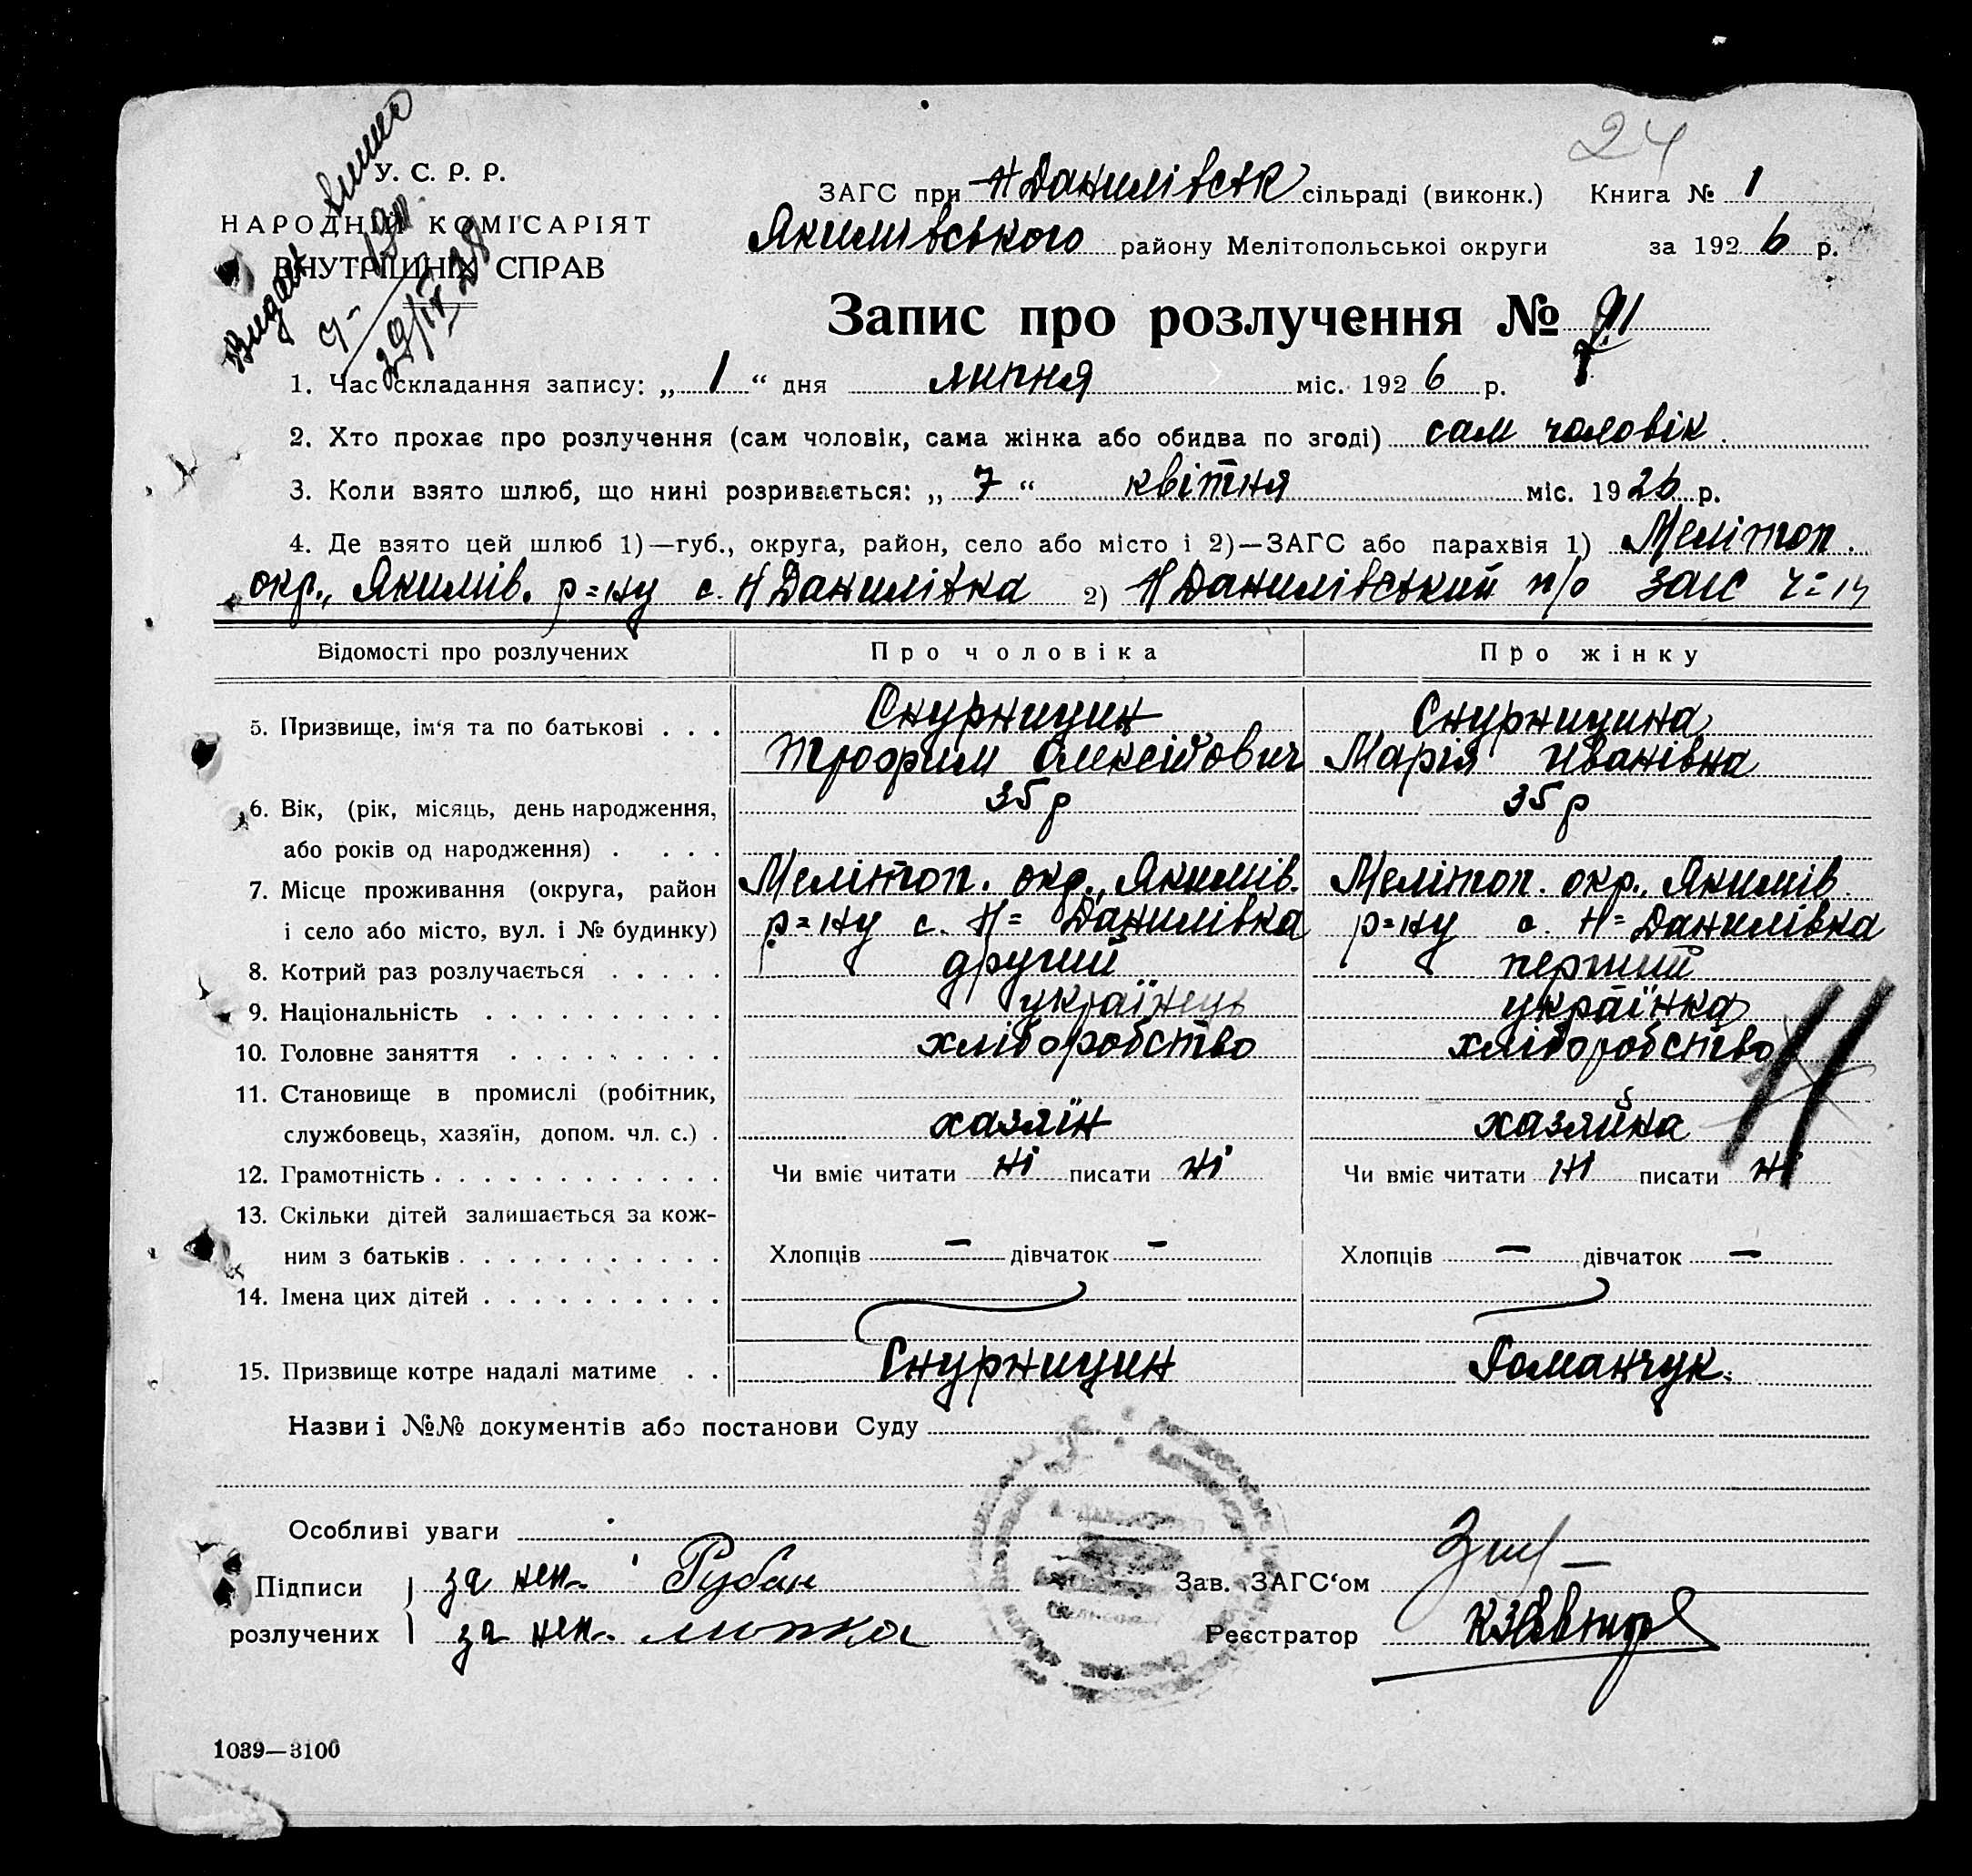 24
У. С. Р. Р.
НАРОДНІЙ КОМІСАРІЯТ
ВНУТРІШНІХ СПРАВ
ЗАГС при Н Данилівськ сільраді (виконк.) Книга № 1
Якимівського району Мелітопольської округи за 1926 р.
Запис про розлучення №
1. Час складання запису: „ 1 “ дня липня міс. 1926 р.
2. Хто прохає про розлучення (сам чоловік, сама жінка або обидва по згоді) сам чоловік
3. Коли взято шлюб, що нині розривається: „ 7 “ квітня міс. 1926 р.
4. Де взято цей шлюб 1)—губ., округа, район, село або місто і 2)—ЗАГС або парахвія 1) Мелітоп.
окр., Якимів. р=ну с. Н Данилівка 2) Н Данилівський п/о ЗАГС
Відомості про розлучених Про чоловіка Про жінку
5. Призвище, ім‘я та по батькові . . . Снурницин Снурницина
Трофим Олексійович Марія Иванівна
6. Вік, (рік, місяць, день народження, 35 р 35 р
або років од народження) . . . .
7. Місце проживання (округа, район Мелітоп. окр., Якимів. Мелітоп. окр., Якимів.
і село або місто, вул. і № будинку) р=ну с. Н= Данилівка р=ну с. Н= Данилівка
8. Котрий раз розлучається . . . . . другий перший
9. Національність . . . . . . . . . . українець українка
10. Головне заняття . . . . . . . . . хліборобство хліборобство
11. Становище в промислі (робітник,
службовець, хазяїн, допом. чл. с.) . хазяїн хазяйка
12. Грамотність . . . . . . . . . . . . Чи вміє читати ні писати ні Чи вміє читати ні писати ні
13. Скільки дітей залишається за кож-
ним з батьків . . . . . . . . . . . Хлопців — дівчаток — Хлопців — дівчаток —
14. Імена цих дітей . . . . . . . . . .
15. Призвище котре надалі матиме . . Снурницин Романчук.
Назви і №№ документів або постанови Суду
Особливі уваги
Підписи за неп. Рубан Зав. ЗАГС‘ом
розлучених за неп. Реєстратор
1039—3100